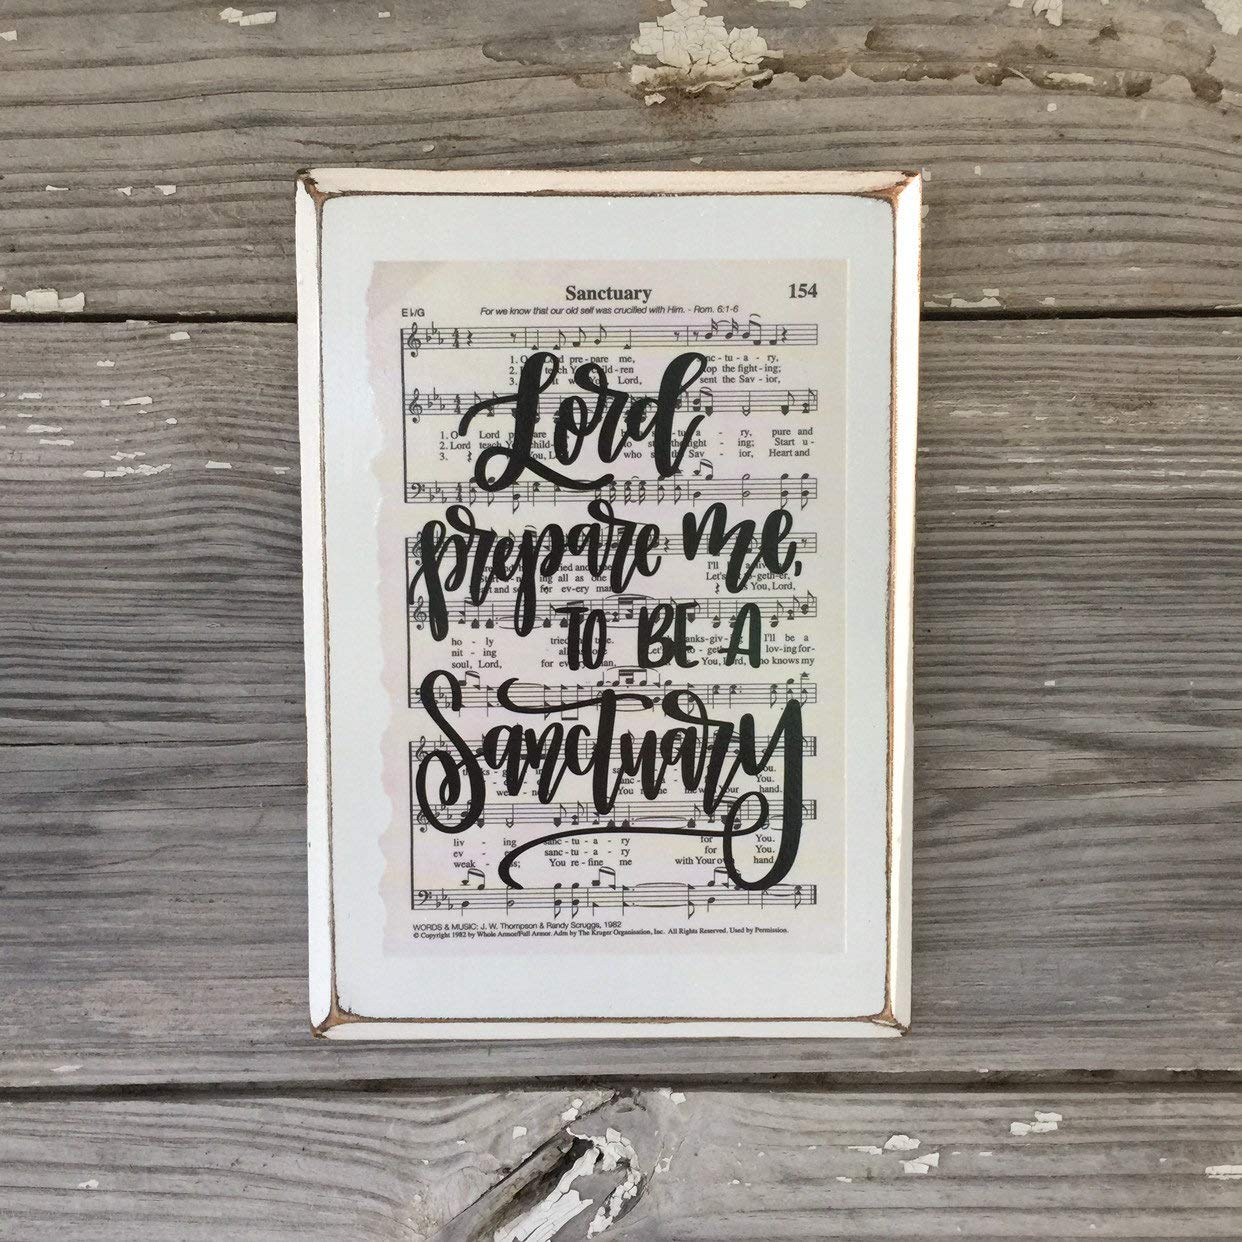 Sanctuary 154
For we know that our old self was crucified with Him. - Rom. 6:1-6
E♭/G
1. O Lord pre - pare me, sanc - tu - a - ry,
2. teach You child - ren stop the fight - ing;
3. Lord, sent the Sav - ior,
Lord
1. O Lord a - ry, pure and
2. Lord teach child - to fight - ing; Start u -
3. You, L who Sav - ior, Heart and
prepare me,
ried and I'll
ing all as one Let's geth - er,
and for ev - ery You, Lord,
TO BE A
ho - ly tried anks - giv - I'll be a
nit - ing lov - ing for -
soul, Lord, for You, Lord, who knows my
Sanctuary
You.
You.
hand.
liv - ing sanc - tu - a - ry for You.
ev - sanc - tu - a - ry for You.
weak - You re - fine me with Your own hand
WORDS & MUSIC: J. W. Thompson & Randy Scruggs, 1982
© Copyright 1982 by Whole Armor/Full Armor. Adm by The Kruger Organisation, Inc. All Rights Reserved. Used by Permission.